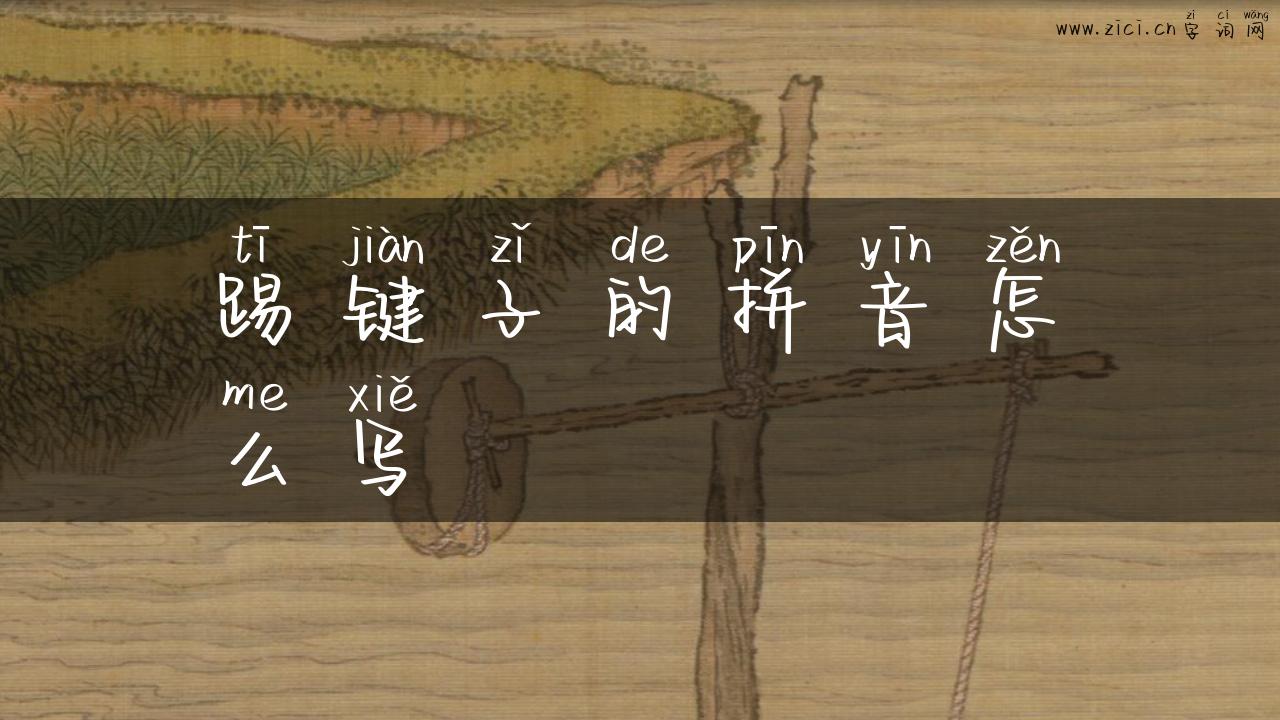 zì cí wǎng
www.zici.cn 字词网
tī jiàn zǐ de pīn yīn zěn
踢键子的拼音怎
me xiě
么写